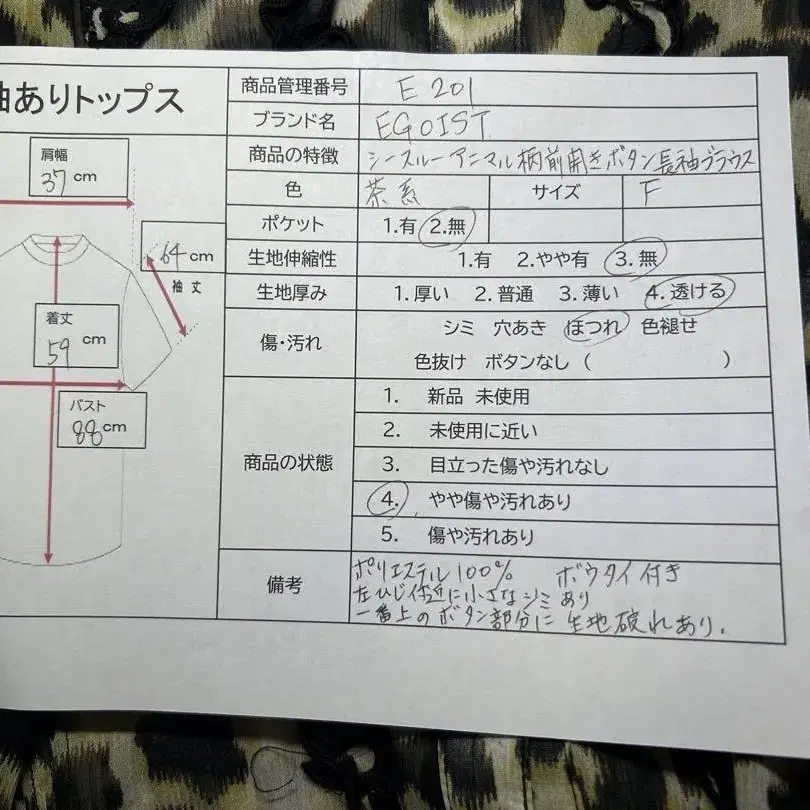 袖ありトップス
肩幅
37 cm
64 cm
袖丈
着丈
59 cm
バスト
88 cm
商品管理番号 E 201
ブランド名 EGOIST
商品の特徴 シースルーアニマル柄前開きボタン長袖ブラウス
色 茶系 サイズ F
ポケット 1.有 2.無
生地伸縮性 1.有 2.やや有 3.無
生地厚み 1.厚い 2.普通 3.薄い 4.透ける
傷・汚れ シミ 穴あき ほつれ 色褪せ
色抜け ボタンなし ( )
商品の状態
1. 新品 未使用
2. 未使用に近い
3. 目立った傷や汚れなし
4. やや傷や汚れあり
5. 傷や汚れあり
備考 ポリエステル100% ボウタイ付き
左ひじ付近に小さなシミあり
一番上のボタン部分に生地破れあり.